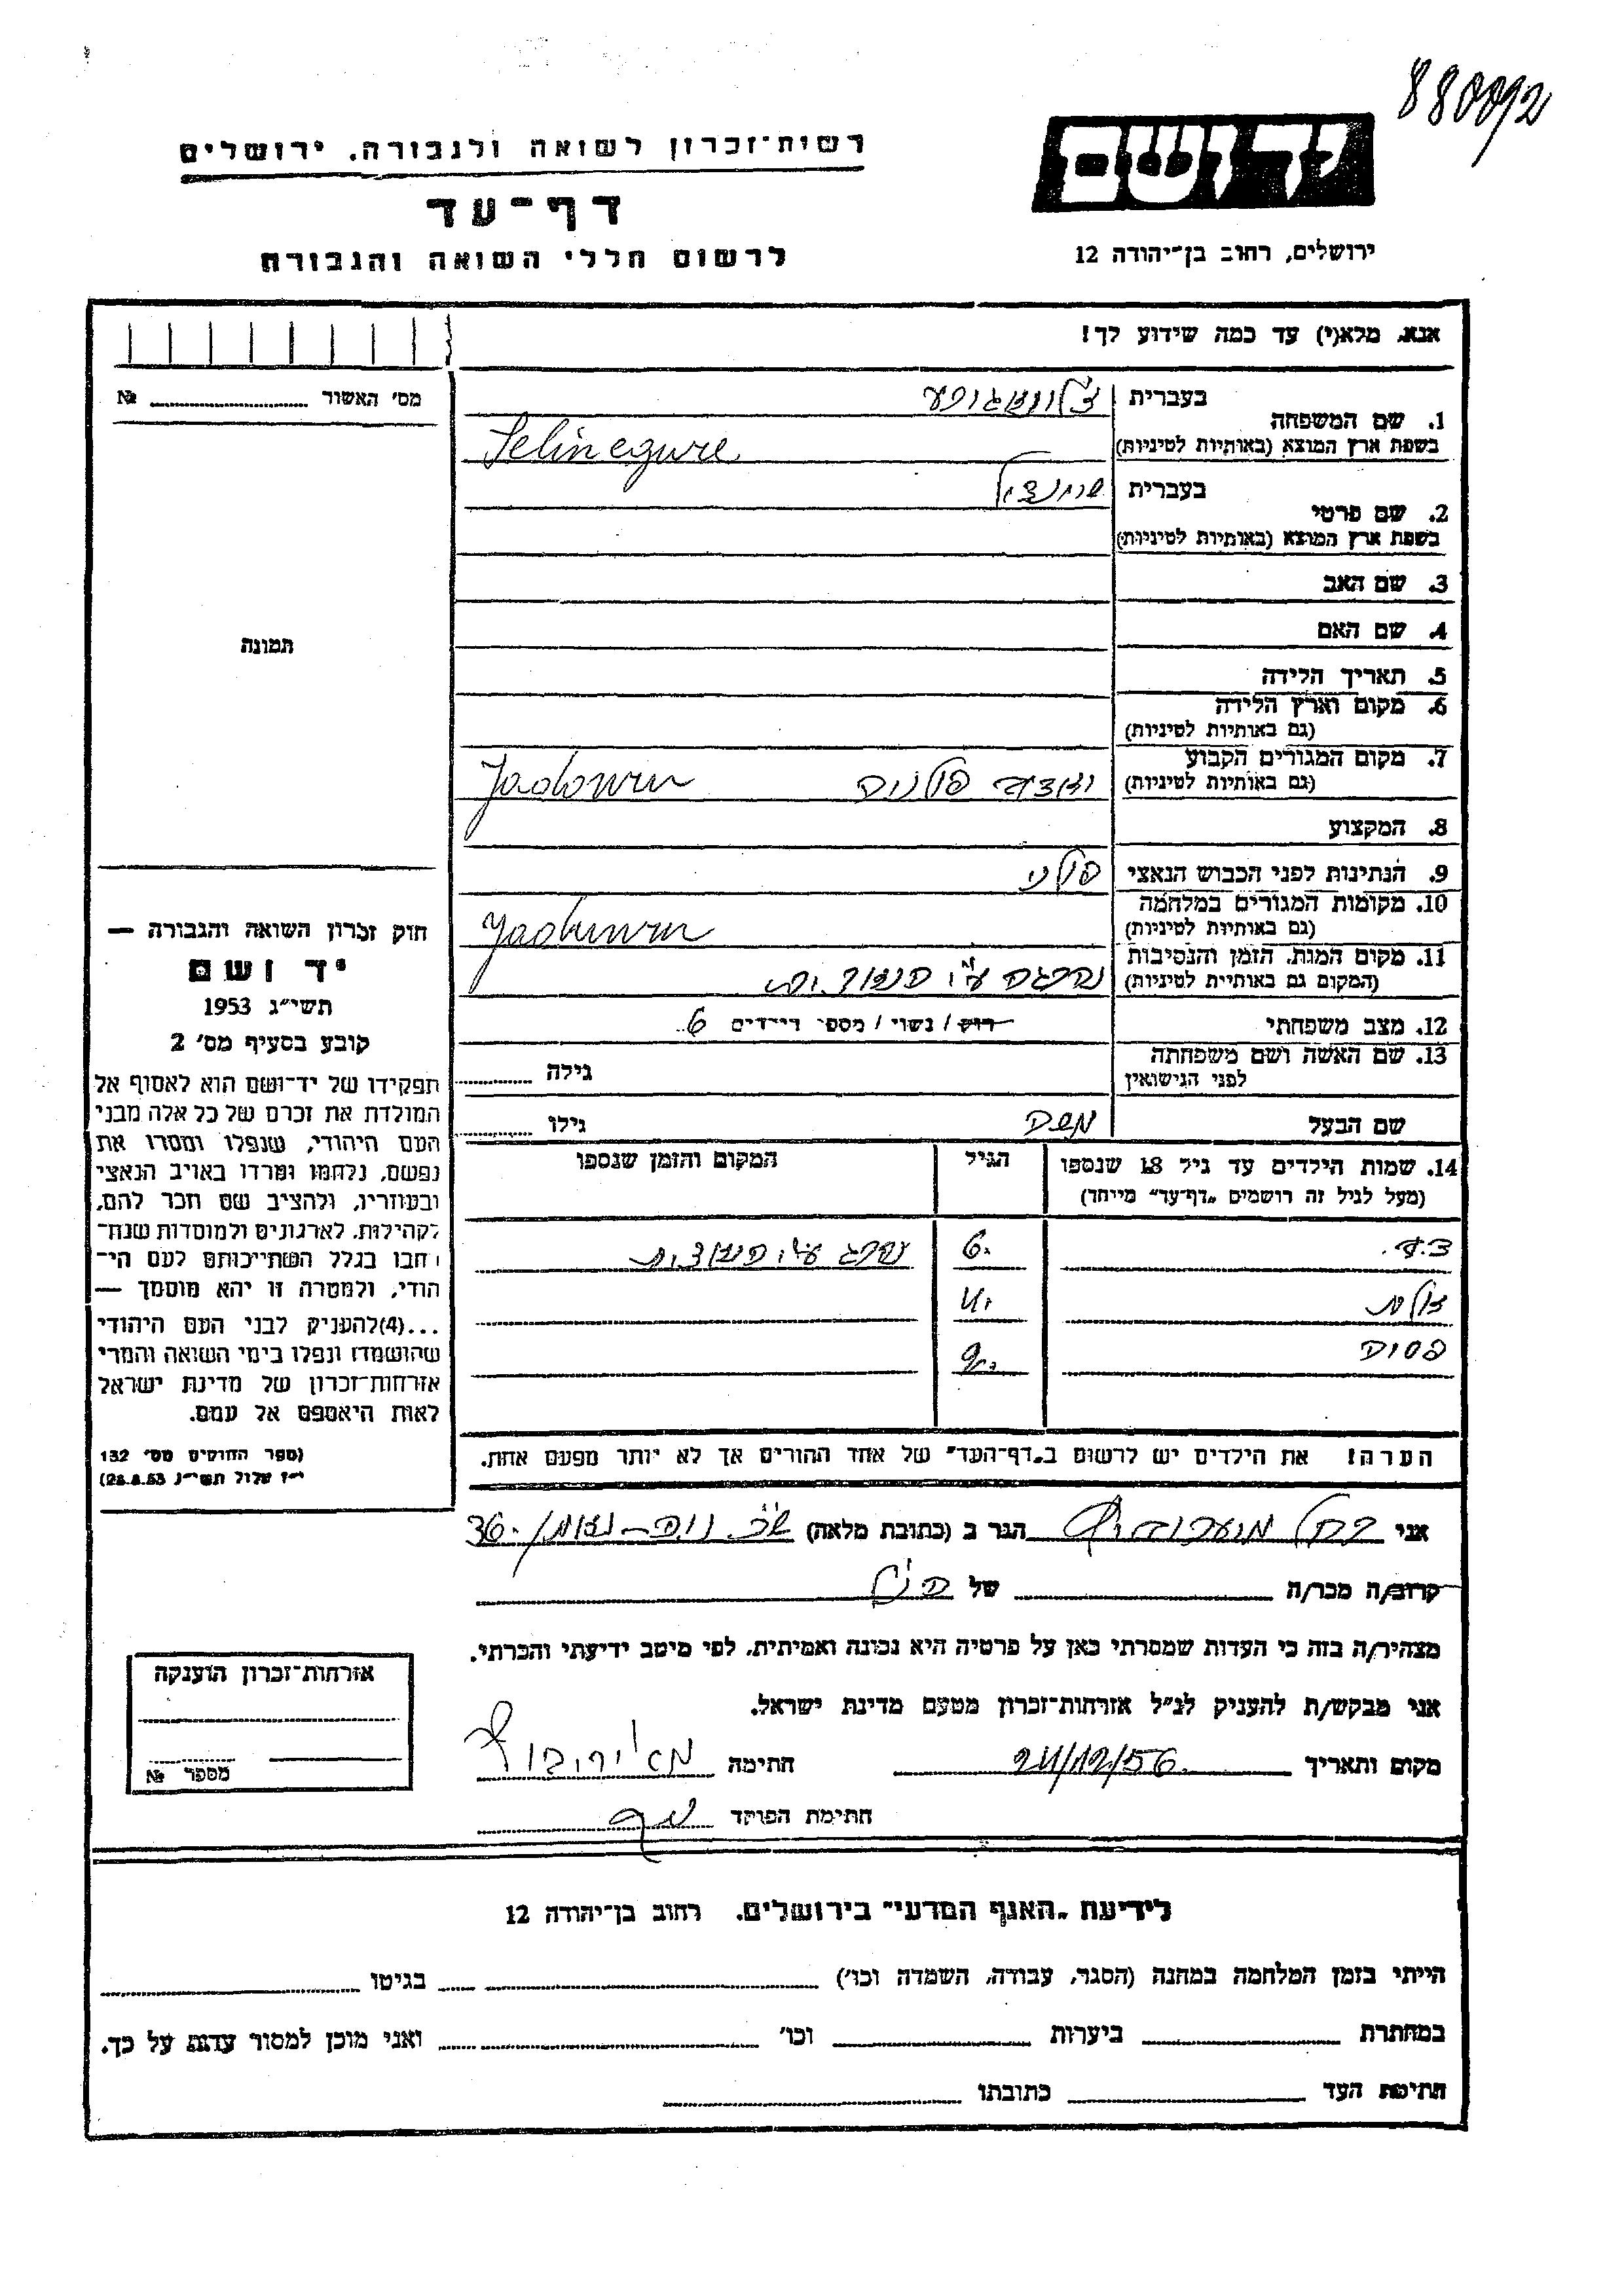 880092
רשות־זכרון לשואה ולגבורה. ירושלים
דף־עד
לרשום חללי השואה והגבורה
יד ושם
ירושלים, רחוב בן־יהודה 12
אנא, מלא(י) עד כמה שידוע לך!
מס׳ האשור № 
1. שם המשפחה בעברית
בשפת ארץ המוצא (באותיות לטיניות) Selinegure
2. שם פרטי בעברית
בשפת ארץ המוצא (באותיות לטיניות)
3. שם האב
4. שם האם
5. תאריך הלידה
6. מקום וארץ הלידה
(גם באותיות לטיניות)
7. מקום המגורים הקבוע
(גם באותיות לטיניות) פולניה
8. המקצוע
9. הנתינות לפני הכבוש הנאצי פולני
10. מקומות המגורים במלחמה
(גם באותיות לטיניות)
11. מקום המות, הזמן והנסיבות
(המקום גם באותיית לטיניות) נהרגה ע״י
12. מצב משפחתי רווק / נשוי / מספר הילדים 6
13. שם האשה ושם משפחתה
לפני הנישואין גילה
שם הבעל משה גילו
14. שמות הילדים עד גיל 18 שנספו
(מעל לגיל זה רושמים „דף־עד״ מיוחד)
הגיל
המקום והזמן שנספו
6
הערה! את הילדים יש לרשום ב„דף־העד״ של אחד ההורים אך לא יותר מפעם אחת.
תמונה
חוק זכרון השואה והגבורה —
יד ושם
תשי״ג 1953
קובע בסעיף מס׳ 2
תפקידו של יד־ושם הוא לאסוף אל
המולדת את זכרם של כל אלה מבני
העם היהודי, שנפלו ומסרו את
נפשם, נלחמו ומרדו באויב הנאצי
ובעוזריו, ולהציב שם וזכר להם,
לקהילות, לארגונים ולמוסדות שנח־
רבו בגלל השתייכותם לעם הי־
הודי, ולמטרה זו יהא מוסמך —
...(4)להעניק לבני העם היהודי
שהושמדו ונפלו בימי השואה והמרי
אזרחות־זכרון של מדינת ישראל
לאות היאספם אל עמם.
(ספר החוקים מס׳ 132
י״ז אלול תשי״ג 28.8.53)
אני רחל הגר ב (כתובת מלאה) 36
קרוב/ה מכר/ה של
מצהיר/ה בזה כי העדות שמסרתי כאן על פרטיה היא נכונה ואמיתית, לפי מיטב ידיעתי והכרתי.
אני מבקש/ת להעניק לנ״ל אזרחות־זכרון מטעם מדינת ישראל.
מקום ותאריך 24/12/56 חתימה
חתימת הפוקד
אזרחות־זכרון הוענקה
מספר №
לידיעת „האגף המדעי״ בירושלים. רחוב בן־יהודה 12
הייתי בזמן המלחמה במחנה (הסגר, עבודה, השמדה וכו׳) בגיטו
במחתרת ביערות וכו׳ ואני מוכן למסור עדות על כך.
חתימת העד כתובתו